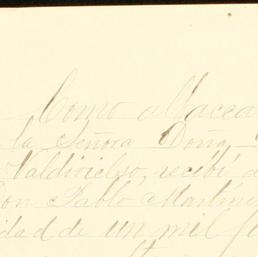 Como albacea
la Señora Doña
Valdivielso, recibí d
Don Pablo Martine
idad de un mil